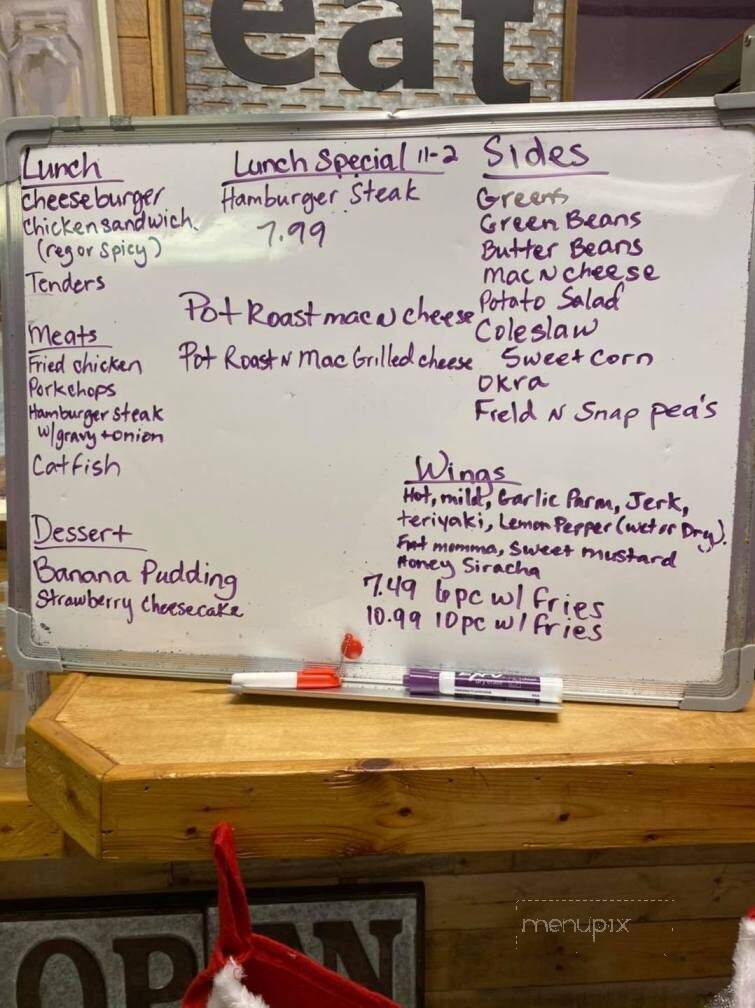 eat
Lunch
cheeseburger
chickensandwich
(reg or spicy)
Tenders
Meats
Fried chicken
Porkchops
Hamburger steak
w/gravy + onion
Catfish
Dessert
Banana Pudding
Strawberry Cheesecake
Lunch Special 11-2
Hamburger Steak
7.99
Pot Roast mac N cheese
Pot Roast N Mac Grilled cheese
Sides
Greens
Green Beans
Butter Beans
Mac N cheese
Potato Salad
Coleslaw
Sweet corn
Okra
Field N Snap pea's
Wings
Hot, mild, Garlic Parm, Jerk,
teriyaki, Lemon Pepper (wet or Dry).
Fat momma, Sweet mustard
Honey Siracha
7.49 6pc w/ Fries
10.99 10pc w/ Fries
EXPO
OPEN
menupix